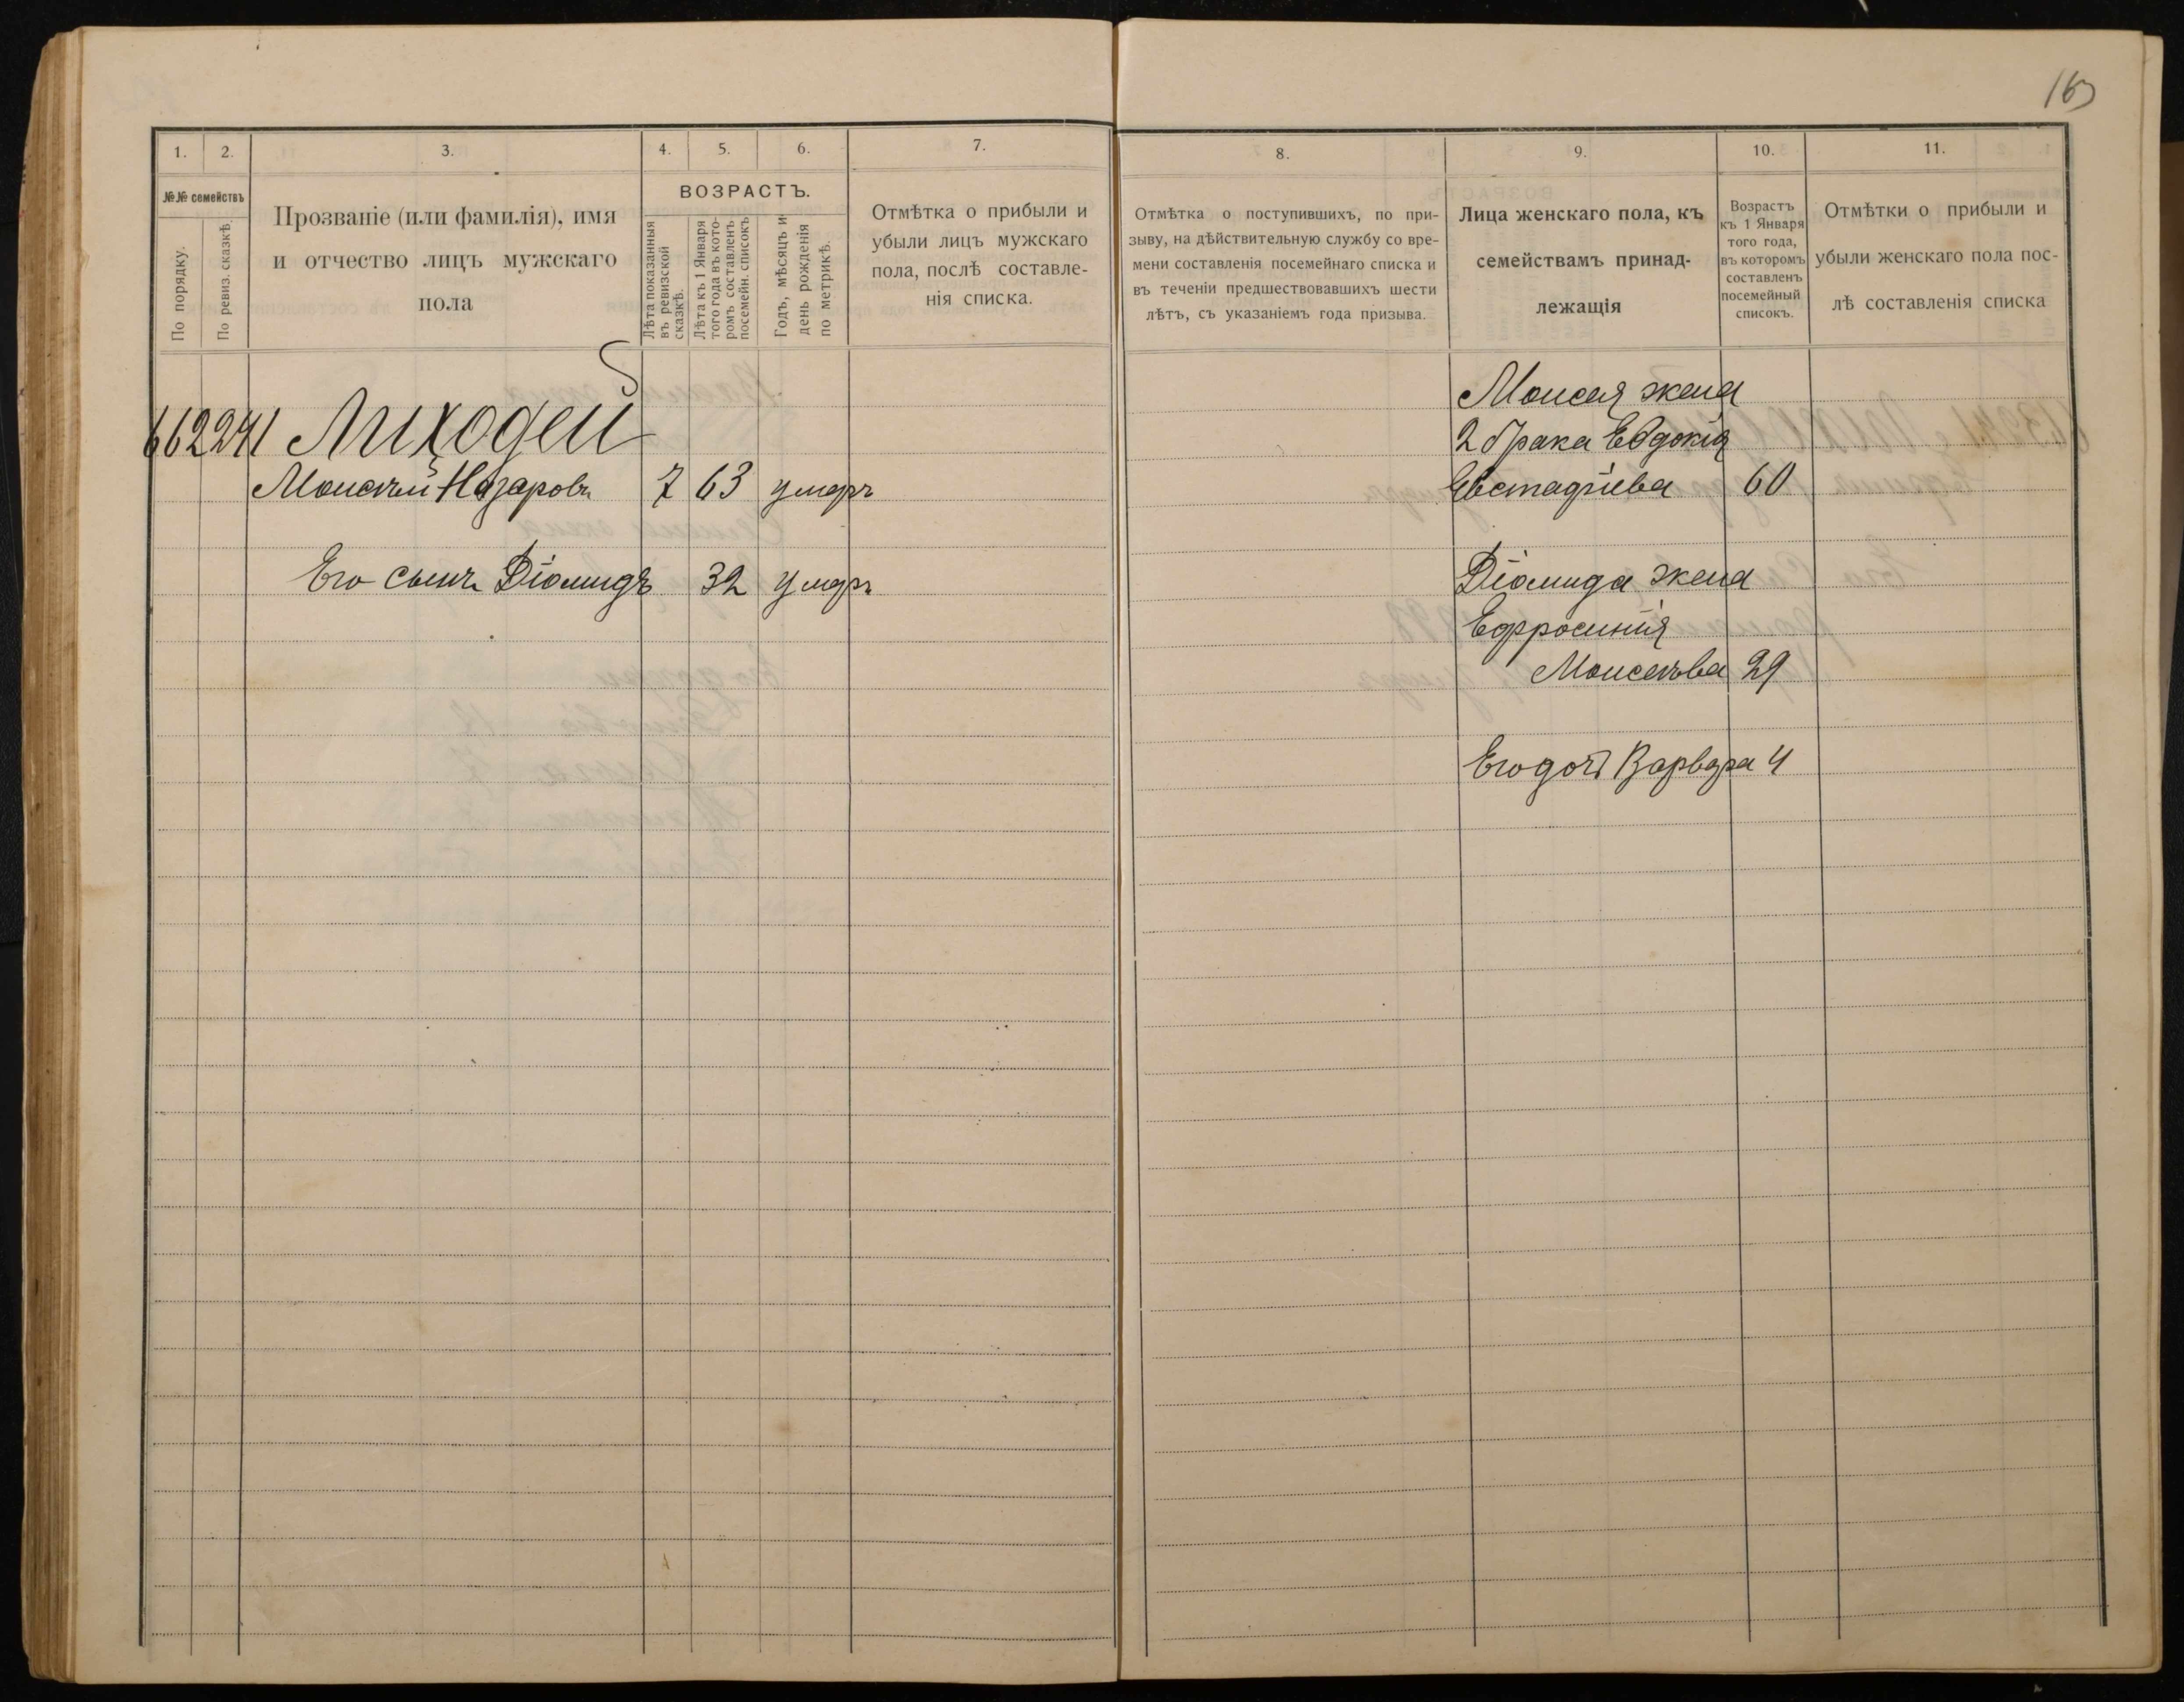 163
1. 2. 3. 4. 5. 6. 7.
№№ семействъ
По порядку.
По ревиз. сказкѣ.
Прозваніе (или фамилія), имя
и отчество лицъ мужскаго
пола
ВОЗРАСТЪ.
Лѣта показанныя
въ ревизской
сказкѣ.
Лѣта къ 1 Января
того года въ кото-
ромъ составленъ
посемейн. списокъ
Годъ, мѣсяцъ и
день рожденія
по метрикѣ.
Отмѣтка о прибыли и
убыли лицъ мужскаго
пола, послѣ составле-
нія списка.
662 241 Лиходей
Моисей Назаровъ 7 63 умеръ
Его сынъ Діомидъ 32 умеръ
8. 9. 10. 11.
Отмѣтка о поступившихъ, по при-
зыву, на дѣйствительную службу со вре-
мени составленія посемейнаго списка и
въ теченіи предшествовавшихъ шести
лѣтъ, съ указаніемъ года призыва.
Лица женскаго пола, къ
семействамъ принад-
лежащія
Возрастъ
къ 1 Января
того года,
въ которомъ
составленъ
посемейный
списокъ.
Отмѣтки о прибыли и
убыли женскаго пола пос-
лѣ составленія списка
Моисея жена
2 брака Евдокія
Евстафіева 60
Діомида жена
Ефросинія
Моисеева 29
Его дочь Варвара 4